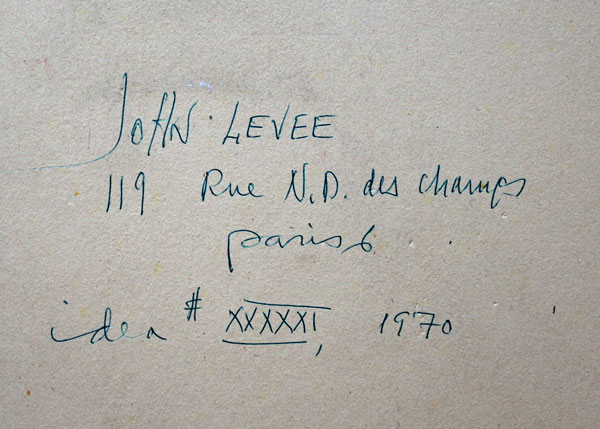 JOHN LEVEE
119 Rue N.D. des champs
paris 6
idea # XXXXXI, 1970